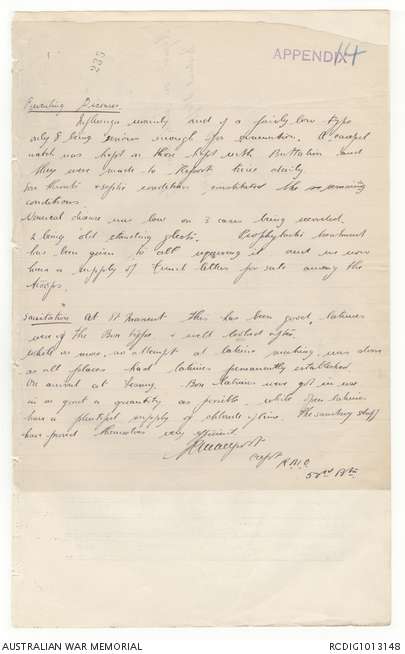 235
APPENDIX 14
Prevailing Diseases.
Influenza mainly and of a fairly low type
only 8 being serious enough for evacuation. A careful
watch was kept on those kept with Battalion and
they were made to Report twice daily.
Sore throats & septic conditions constituted the remaining
conditions.
Venereal disease was low on 3 cases being recorded,
2 being old standing gleets. Prophylactic treatment
has been given to all requiring it and we now
have a supply of French letters for sale among the
troops.
Sanitation At St this has been good, latrines
were of the Box type & well looked after.
While on move, no attempt at latrine making was done
as all places had latrines permanently established.
On arrival at Box latrines were got in use
in as great a quantity as possible, while open latrines
have a plentiful supply of chloride of lime. The sanitary staff
have proved themselves very efficient.
Capt
52nd Btn.
AUSTRALIAN WAR MEMORIAL
RCDIG1013148